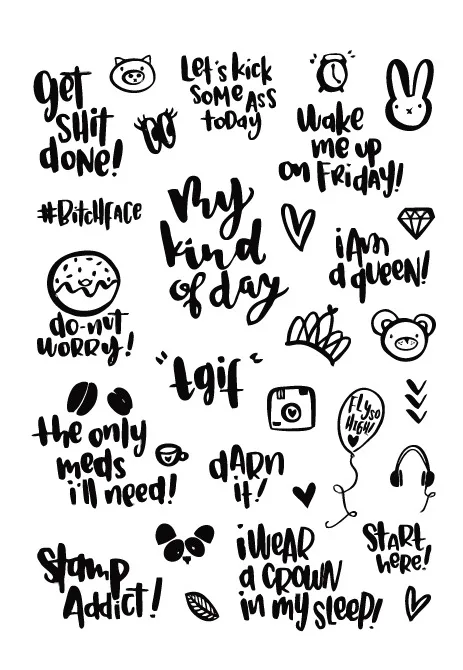 get
shit
done!
Let's kick
some ass
today
wake
me up
on Friday!
#Bitchface
my
kind
of day
i Am
a queen!
do-nut
worry!
"tgif"
Fly so
High!
the only
meds
i'll need!
dArn
it!
Stamp
Addict!
i wear
a crown
in my sleep!
Start
here!